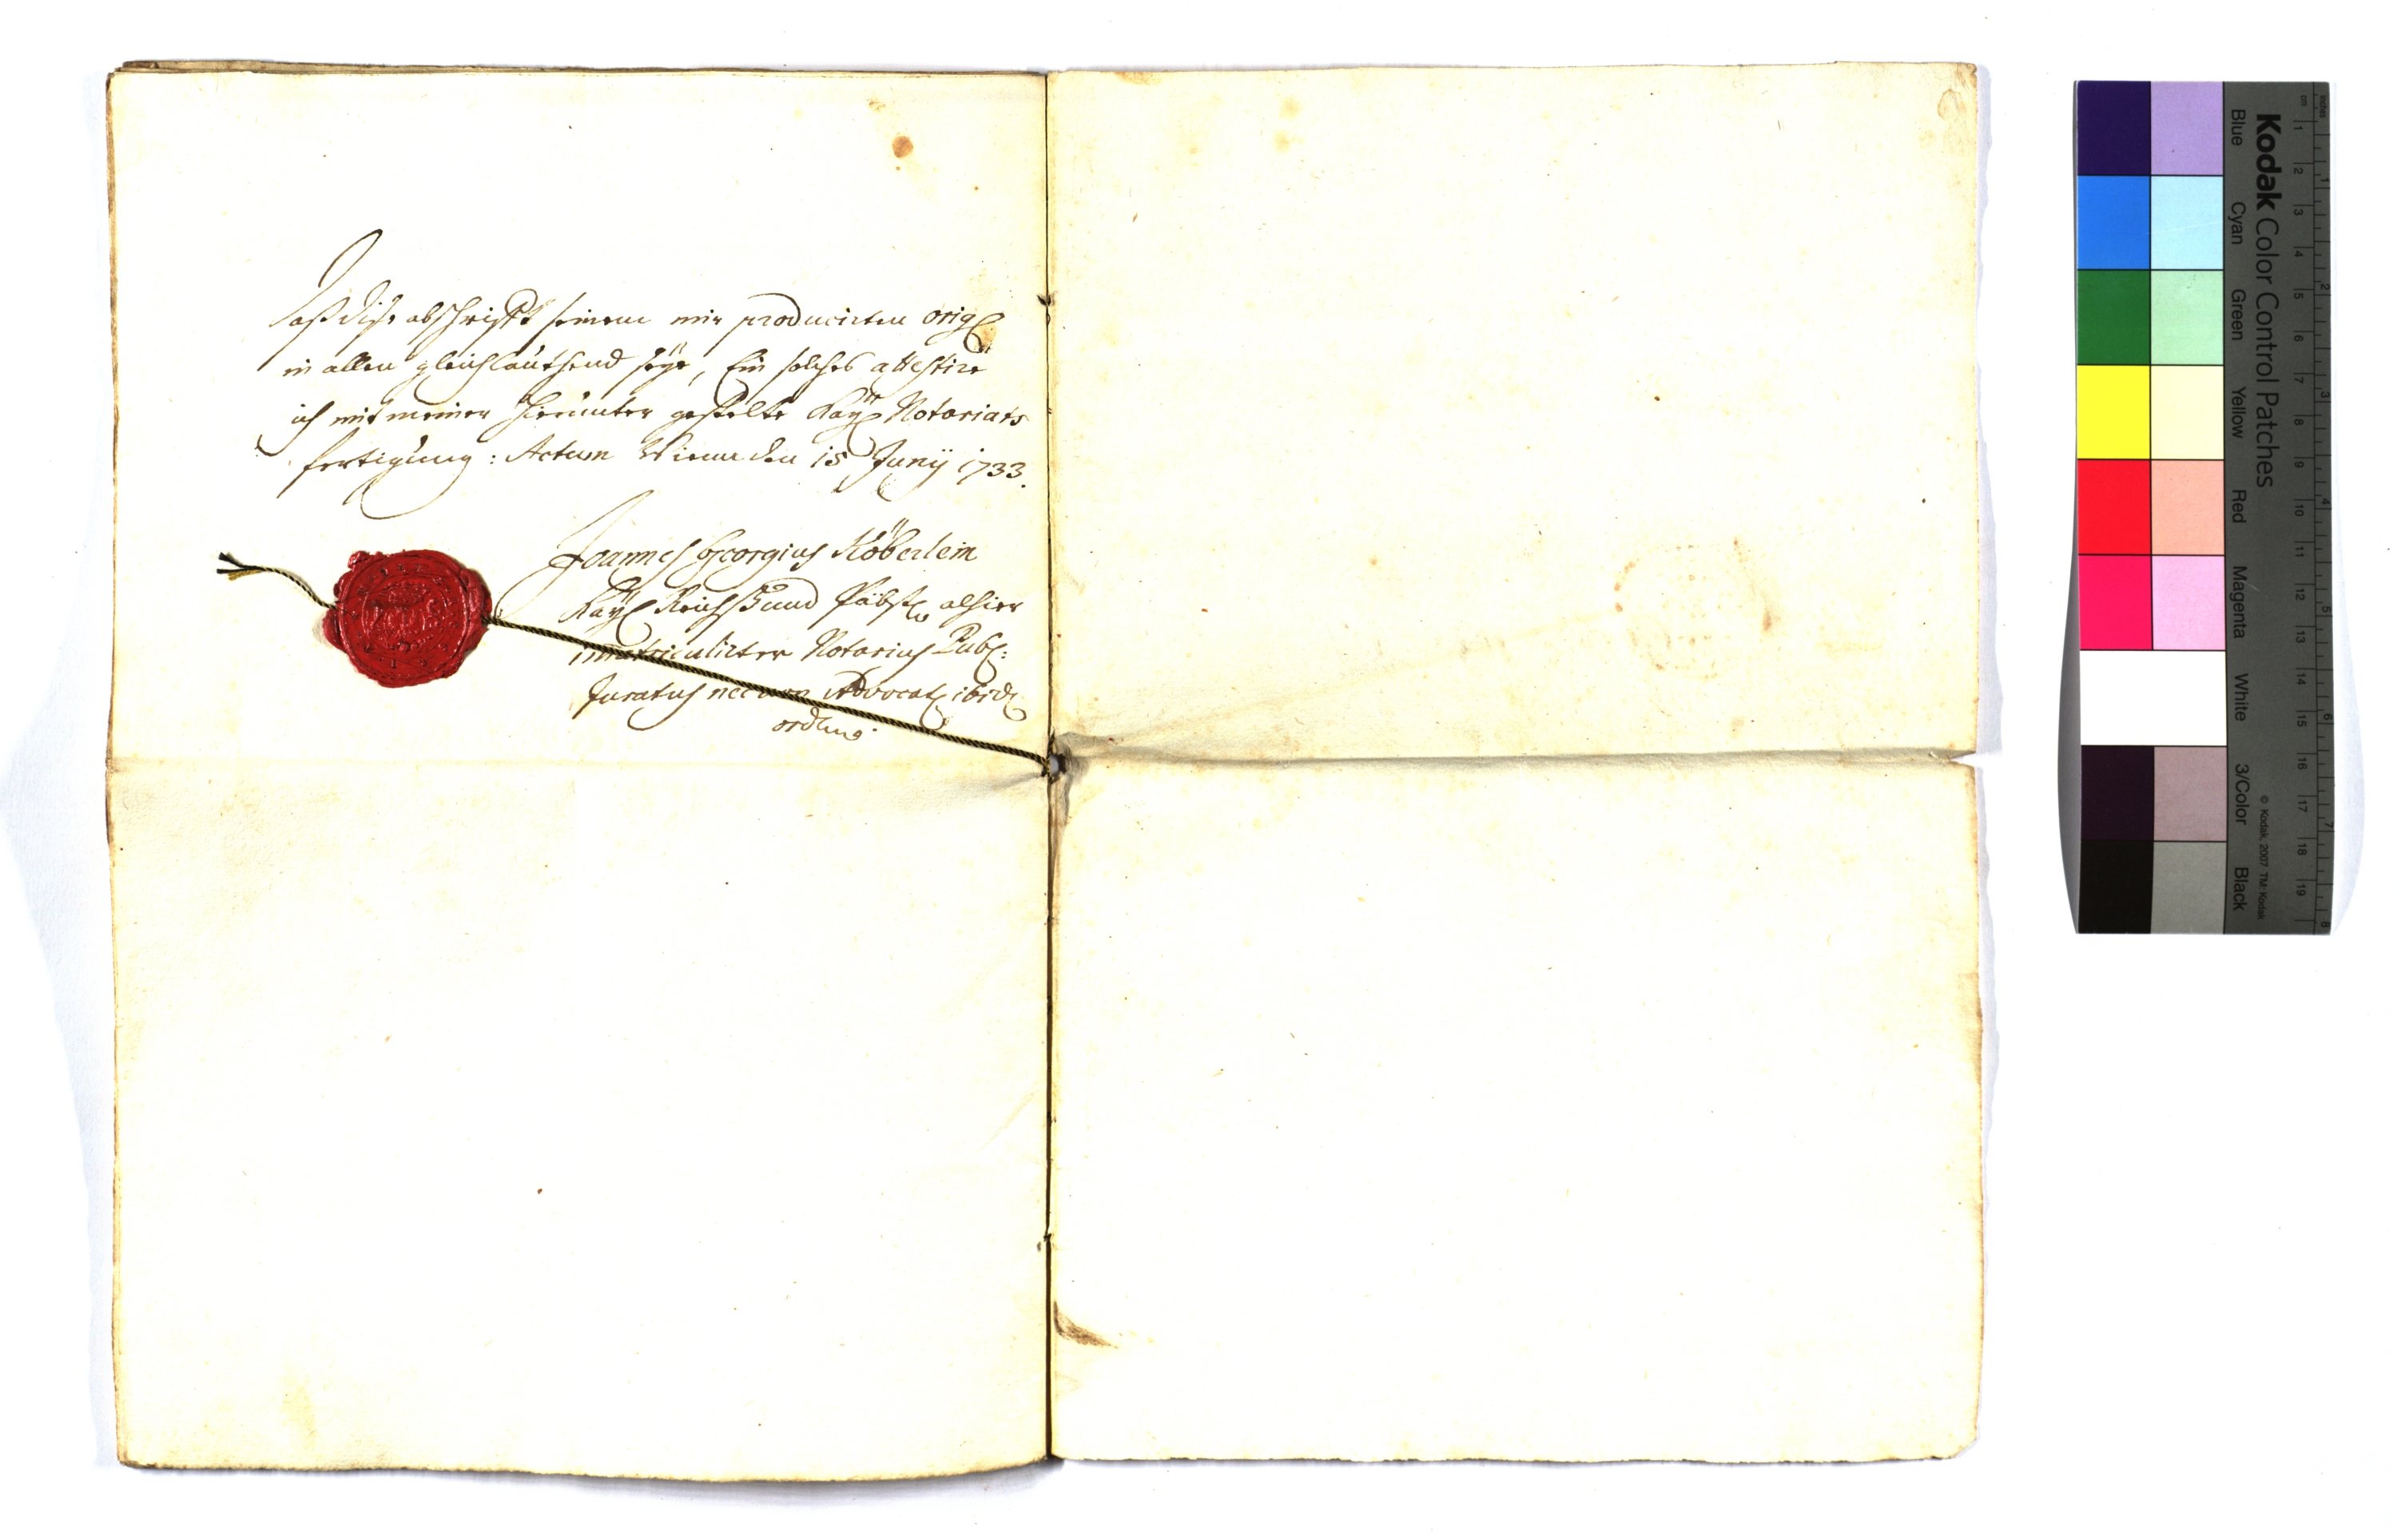 Daß dise abschrifft seinem mir producirten orig
in allen gleichlauthend seye, Ein solches attestire
ich mit meiner hierunter gestelte Kay: Notariats
fertigung: Actum Wienn den 15 Junÿ 1733.
Joannes Georgius Köberlein
Kaÿ: Reichs und Päbst: alhier
immatriculirter Notarius Pub:
Juratus nec non Advocat: ibid:
Kodak Color Control Patches
Blue Cyan Green Yellow Red Magenta White 3/Color Black
© Kodak, 2007 TM: Kodak
cm 1 2 3 4 5 6 7 8 9 10 11 12 13 14 15 16 17 18 19
inches 1 2 3 4 5 6 7 8